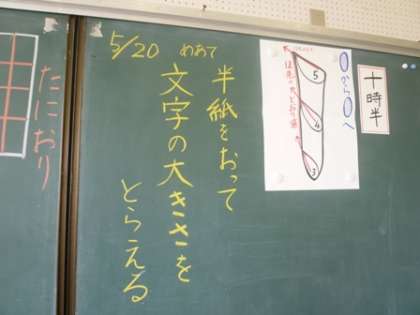 十時半
○から○へ
5
4
3
5/20 めあて
半紙をおって
文字の大きさを
とらえる
たにおり